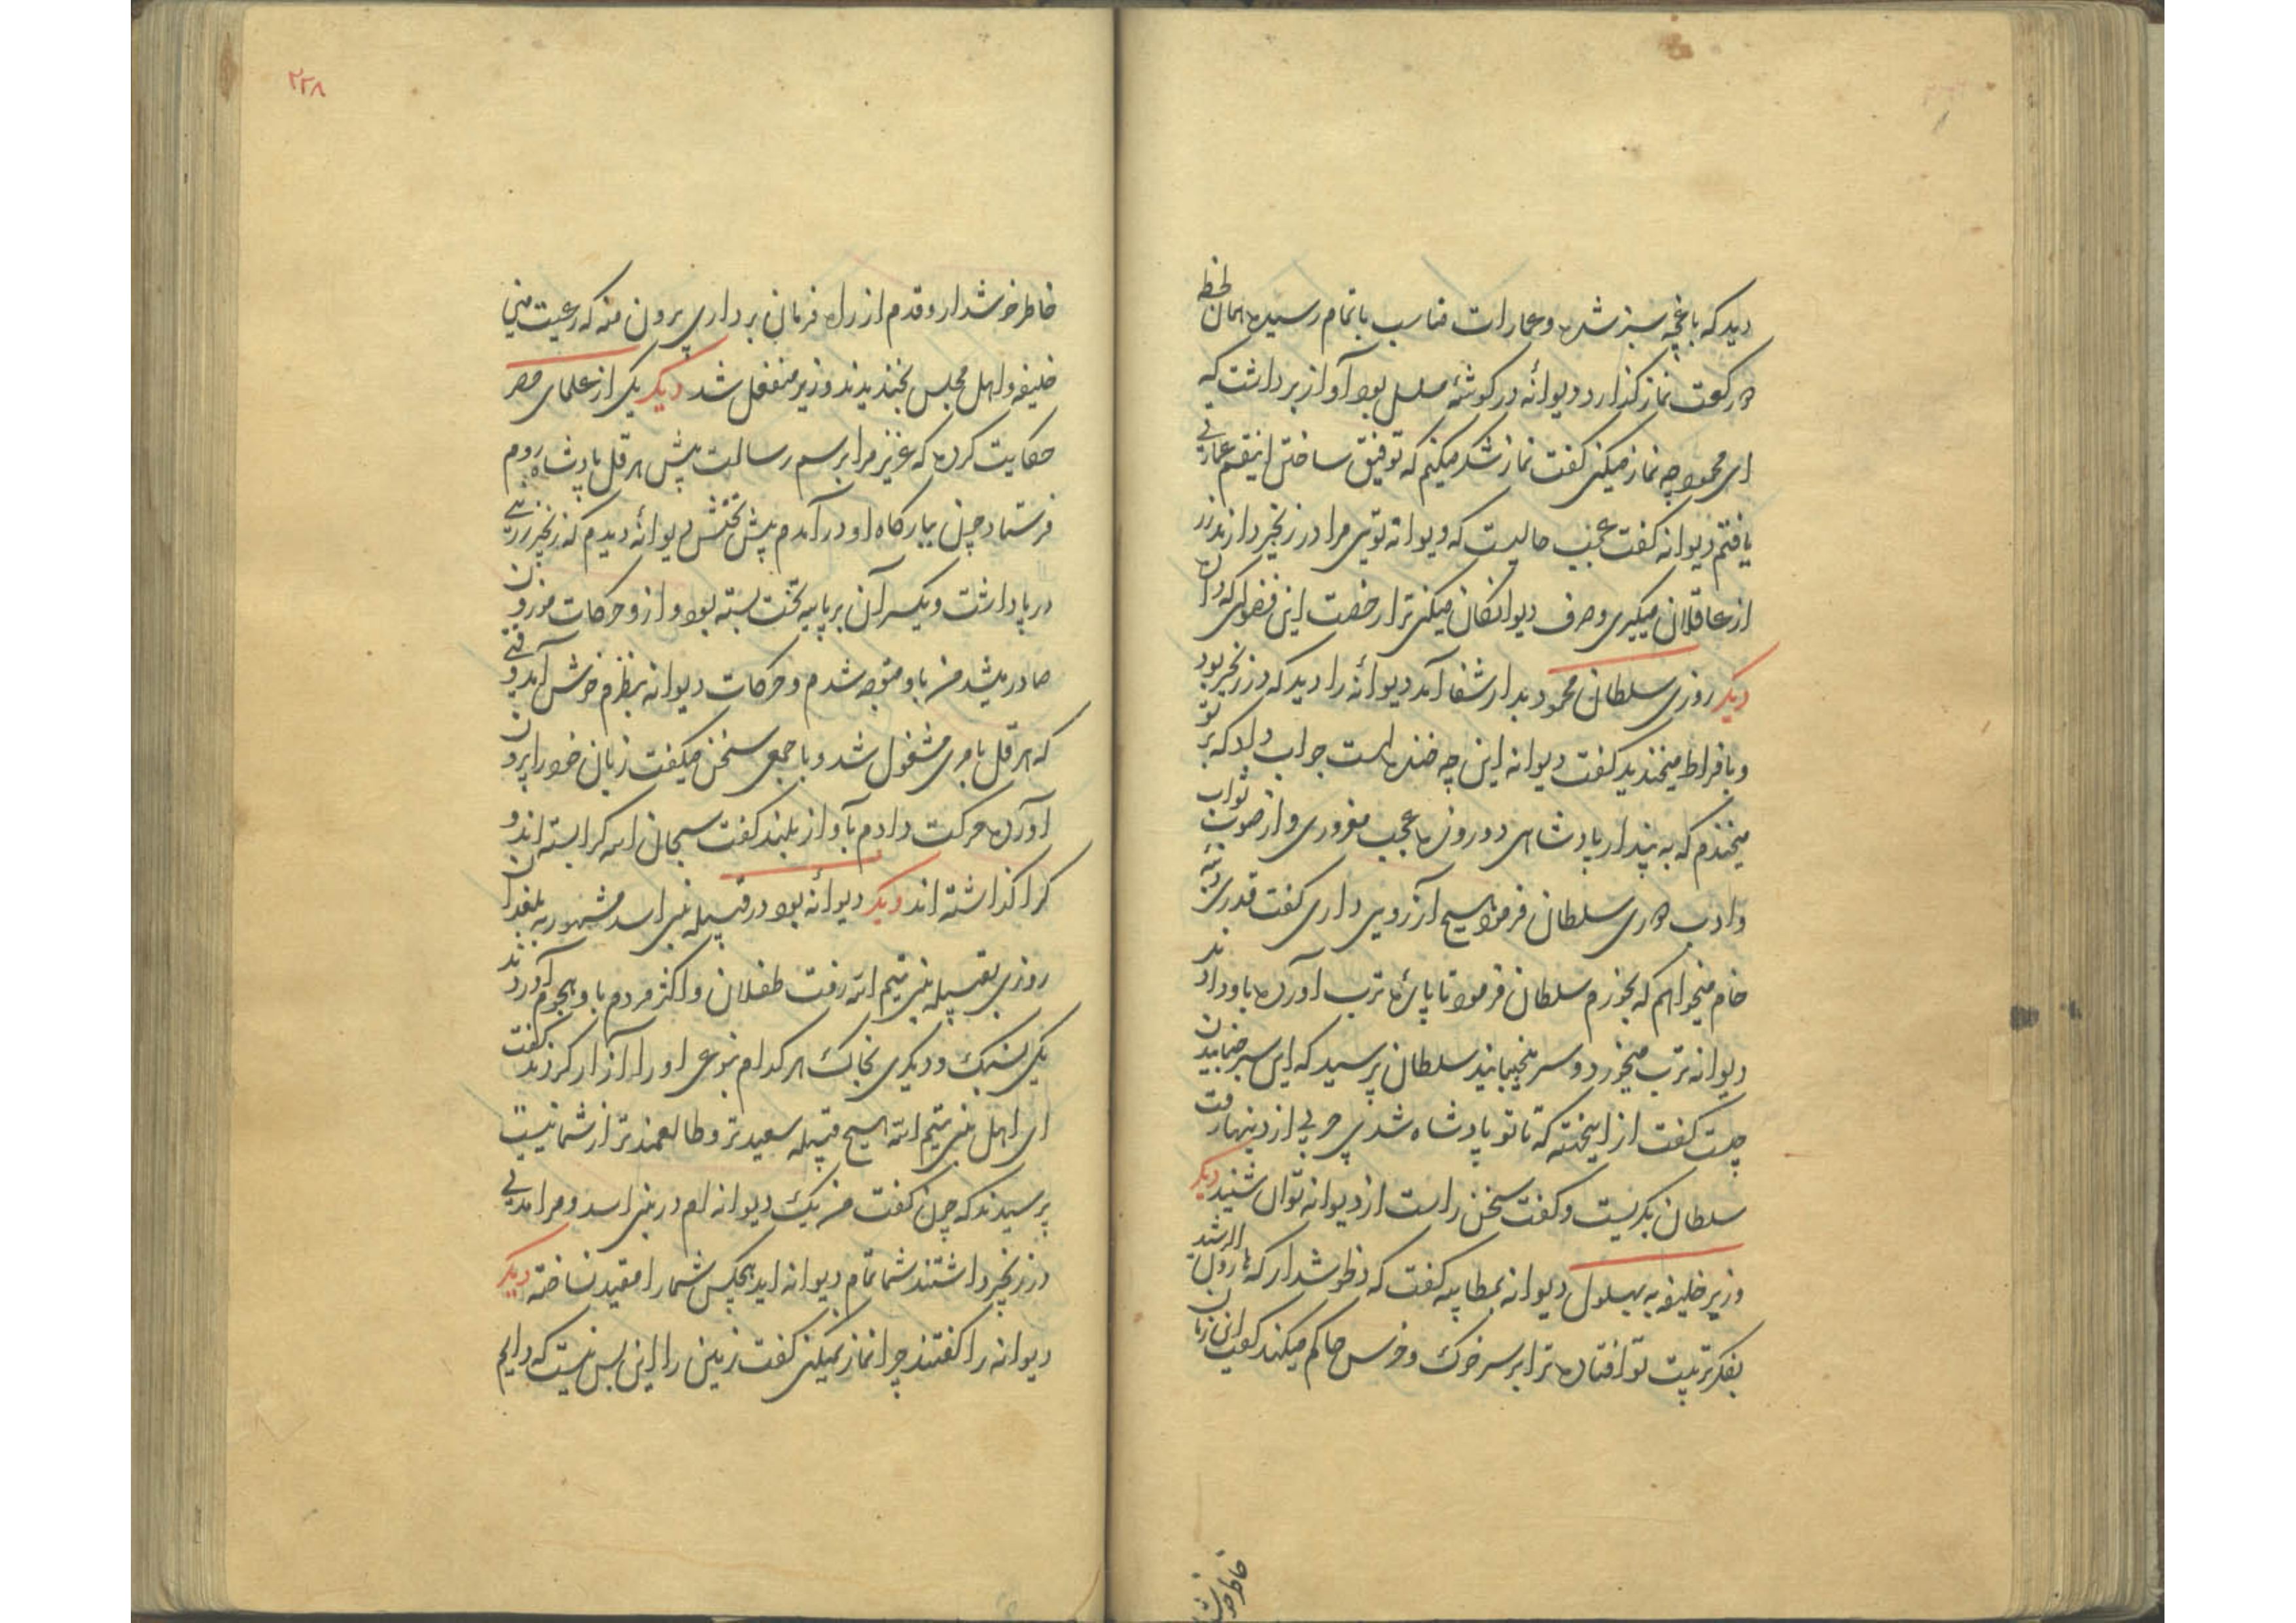 دید که باغچه سبز شده و عمارات مناسب باتمام رسیده همان لحظه
دو رکعت نماز گذارد دیوانهٔ در گوشهٔ مسلسل بود آواز برداشت که
ای محمود چه نماز میکنی گفت نماز شکر میکنم که توفیق ساختن اینقسم عمارتی
یافتم دیوانه گفت عجب حالیست که دیوانه تویی مرا در زنجیر دارند زر
از عاقلان میگیری و صرف دیوانکان میکنی ترا رخصت این فضولی که داده
دیگر روزی سلطان محمود بدار شفا آمد دیوانهٔ را دید که در زنجیر بود
و بافراط میخندید گفت دیوانه این چه خنده است جواب داد که بر تو
میخندم که به پندار پادشاهی دو روزه عجب مغروری و از صوب ثواب
و ادب دوری سلطان فرمود هیچ آرزویی داری گفت قدری دنبه
خام میخواهم که بخورم سلطان فرمود تا پارهٔ ترب آورده باو دادند
دیوانه ترب میخورد و سر میجنبانید سلطان پرسید که این سر جنبانیدن
چیست گفت از اینجهته که تا تو پادشاه شدی چربی از دنبها رفت
سلطان بگریست و گفت سخن راست از دیوانه توان شنید دیگر
وزیر خلیفه به بهلول دیوانه بمطایبه گفت که خاطر خوشدار که هارون الرشید
بفکر تربیت تو افتاده ترا بر سر خوک و خرس حاکم میکند گفت این زمان
خاطر خوشدار
۲۲۸
خاطر خوشدار و قدم از راه فرمان برداری برون منه که رعیت منی
خلیفه و اهل مجلس بخندیدند و وزیر منفعل شد دیگر یکی از علمای مصر
حکایت کرده که عزیز مرا برسم رسالت پیش هرقل پادشاه روم
فرستاد چون ببارکاه او در آمدم پیش تختش دیوانهٔ دیدم که زنجیر زرینی
در پا داشت و یکسر آن بر پایه تخت بسته بود و ازو حرکات موزون
صادر میشد من باو متوجه شدم و حرکات دیوانه بنظرم خوش آمد وقتی
که هرقل بامری مشغول شد و با جمعی سخن میکفت زبان خود را برون
آورده حرکت دادم بآواز بلند گفت سبحان الله کرا بسته اند و
کرا گذاشته اند دیگر دیوانهٔ بود در قبیله بنی اسد مشهور به بلغدان
روزی بقبیله بنی تیم الله رفت طفلان و اکثر مردم باو هجوم آوردند
یکی بسنگ و دیگری بخاک هر کدام بنوعی او را آزار کردند گفت
ای اهل بنی تیم الله هیچ قبیله سعیدتر و طالعمندتر از شما نیست
پرسیدند که چون گفت من یک دیوانه ام در بنی اسد و مرا مدتی
در زنجیر داشتند شما تمام دیوانه اید هیچکس شما را مقید نساخته دیگر
دیوانه را گفتند چرا نماز نمیکنی گفت زمین را این بس نیست که دایم